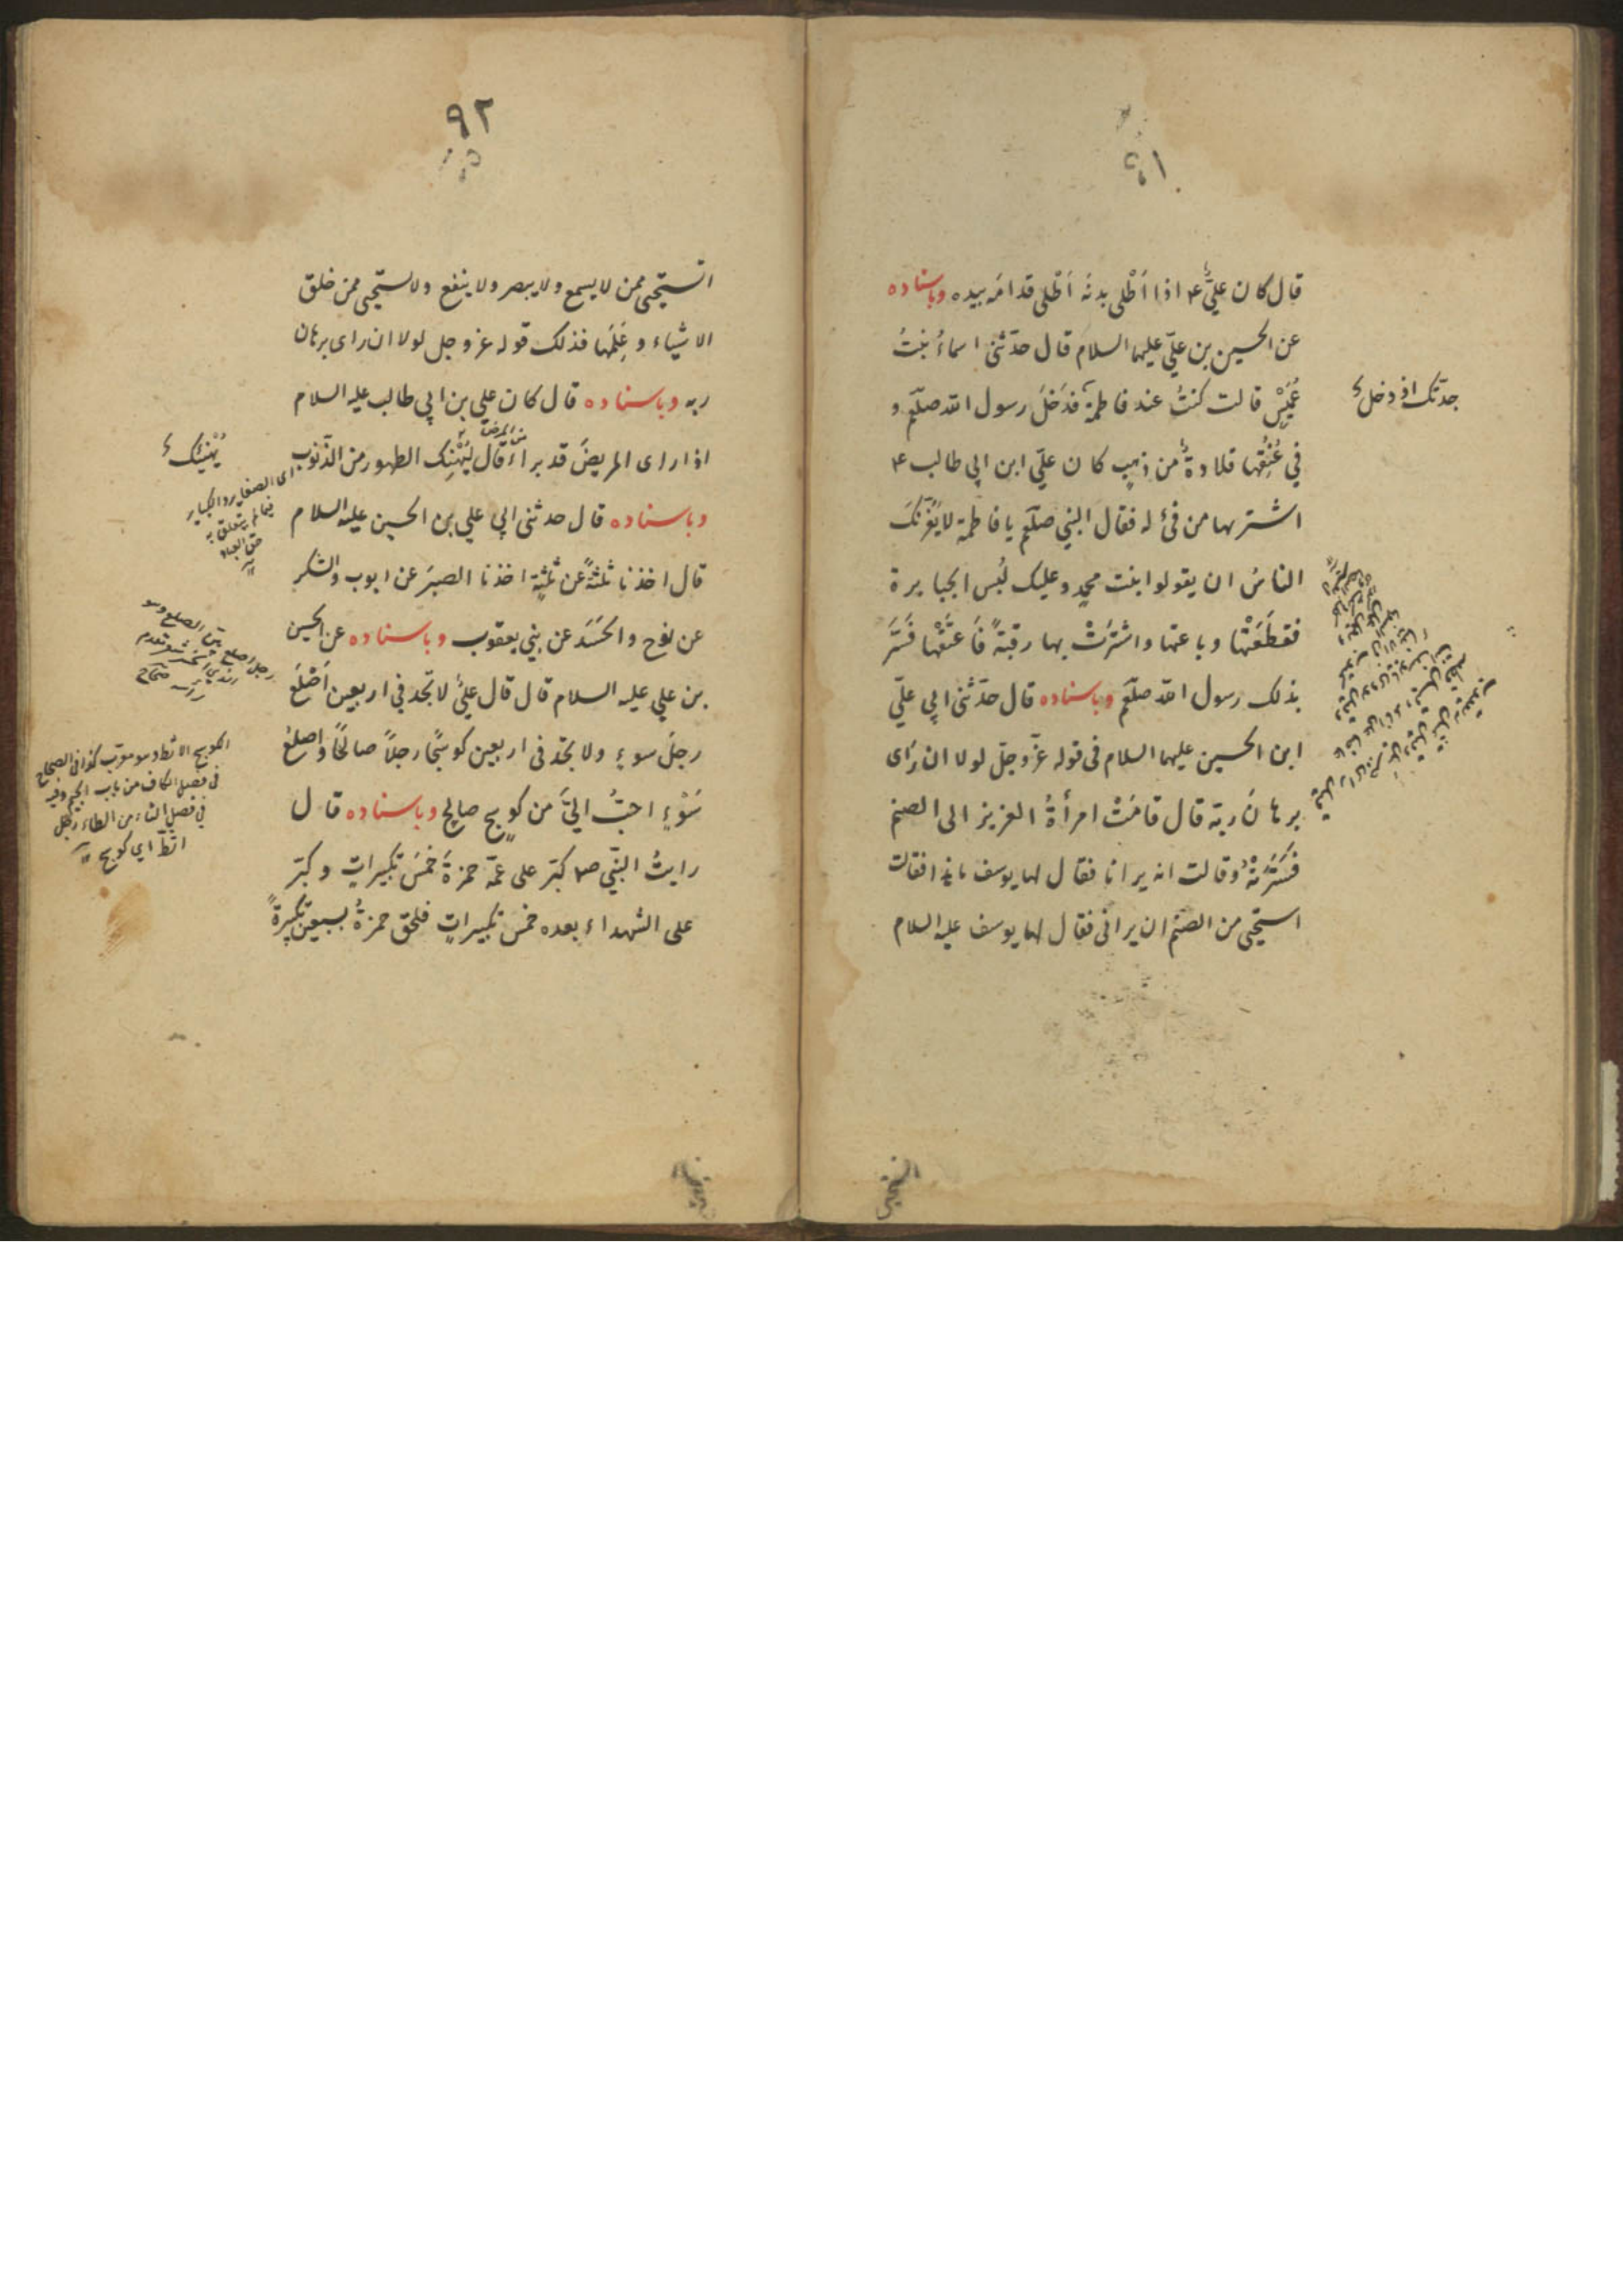 ٩١
قال كان عليٌّ ع اذا اَطْلى بدنَه اَطْلى قدامَه بيده وباسناده
عن الحسين بن عليّ عليهما السلام قال حدّثنى اسماءُ بنتُ
عُمَيْسٍ قالت كنتُ عند فاطمة فدَخلَ رسول الله صلّعم و
جدّتك اذ دخل
فى عُنُقِها قلادةٌ من ذهبٍ كان عليّ ابن ابى طالب ع
اشتريها من فىْءٍ له فقال النبي صلّعم يا فاطمة لا يَغُرَّنكَ
الناسُ ان يقولوا بنت محمدٍ وعليك لُبس الجبابرة
فقطَعَتْها وباعتها واشترَتْ بها رقبةً فَاعتَقَتْها فَسُرَّ
بذلك رسول الله صلّعم وباسناده قال حدّثنى ابي عليّ
ابن الحسين عليهما السلام فى قوله عزّوجلّ لولا ان رَاى
برهانَ ربّه قال قامَتْ امرأةُ العزيز الى الصنم
فسَتَرَتْهُ وقالت انه يرانا فقال لها يوسف ماذا فقالت
استحيى من الصنم ان يرانى فقال لها يوسف عليه السلام
اتستحيى
٩٢
اتستحيى ممن لا يسمع ولا يبصر ولا ينفع ولا استحيى ممن خلق
الاشياء وعَلِمَها فذلك قوله عزوجل لولا ان راى برهان
ربه وباسناده قال كان علي بن ابي طالب عليه السلام
من المرض
اذا راى المريضَ قد براء قال ليَهْنِك الطهور من الذنوب
يُهنيك
اى الصغاير والكباير
فيما لم يتعلق به
حق العباد
وباسناده قال حدثنى ابي علي بن الحسين عليه السلام
قال اخذنا ثلثةً عن ثلثةٍ اخذنا الصبرَ عن ايوب والشكر
عن نوح والحَسَد عن بني يعقوب وباسناده عن الحسين
رجل اصلع بيّن الصلع وهو
الذى انحسر شعر مقدم
راسه صحاح
بن علي عليه السلام قال قال عليٌّ لا تجد فى اربعين اَصْلَعَ
رجلَ سوءٍ ولا تجد فى اربعين كوسَجًا رجلاً صالحًا واصلعُ
الكوسج الاثط وهو معرّب كذا فى الصحاح
فى فصل الكاف من باب الجيم وفيه
فى فصل الثاء من الطاء رجل
اثطّ اي كوسج
سَوْءٍ احبُّ اليَّ من كوسجٍ صالحٍ وباسناده قال
رايتُ النبّي صم كبّر على عمّه حمزةَ خمسَ تكبيراتٍ وكبّر
على الشهداء بعده خمسَ تكبيراتٍ فلحق حمزةُ بسبعين تكبيرةً